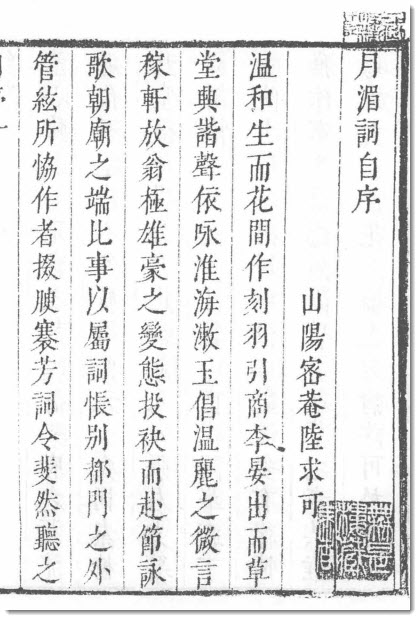 月湄詞自序
山陽密菴陸求可
温和生而花間作刻羽引商李晏出而草
堂興諧聲依咏淮海漱玉倡温麗之微言
稼軒放翁極雄豪之變態投袂而赴節詠
歌朝廟之端比事以屬詞悵别都門之外
管絃所協作者掇腴搴芳詞令斐然聽之